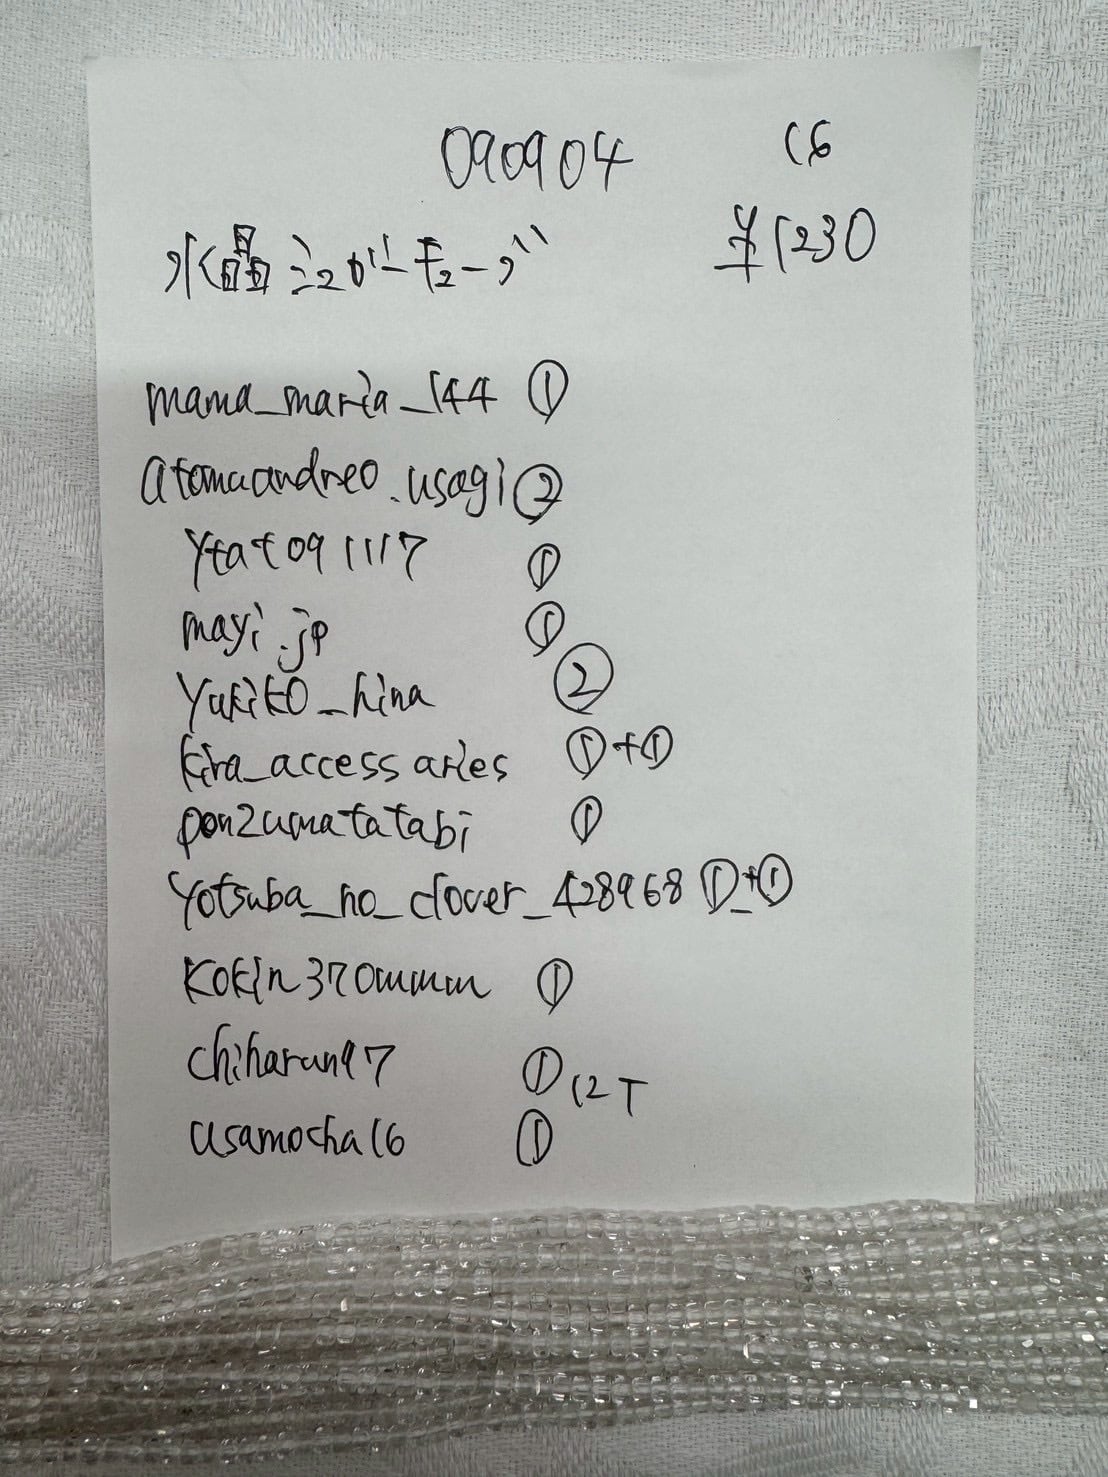 090904 16
水晶ミラーカット
¥1230
mama_maria_144 ①
atomuandreo.usagi ②
ytat091117 ①
mayi.jp ①
yukiko_hina ②
kira_accessaries ①+①
pon2umatatabi ①
yotsuba_no_clover_428968 ①+①
kokin370mmm ①
chiharun97 ① 12T
usamocha16 ①